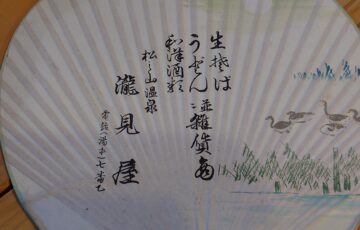 生そば
うどん並雑貨商
和洋酒類
松之山温泉
瀧見屋
電話(湯本)七番乙